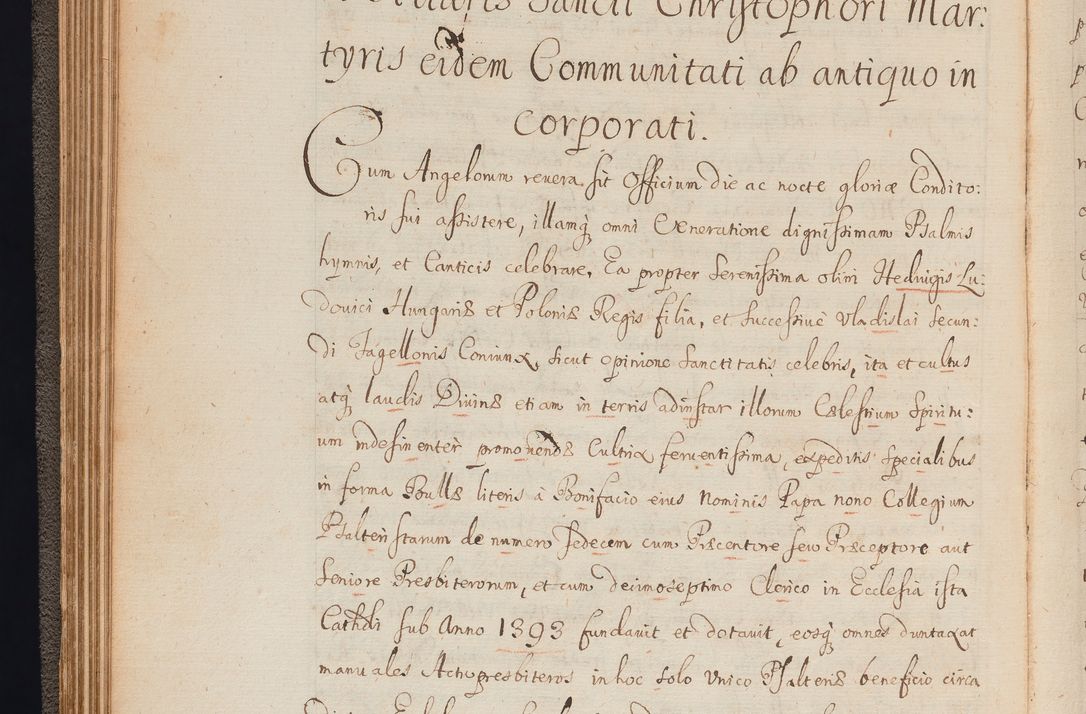 Sancti Christophori Mar:
tyris eidem Communitati ab antiquo in
corporati.
Cum Angelorum revera sit Officium die ac nocte gloriæ Condito:
ris sui assistere, illamq; omni Veneratione dignissimam Psalmis
hymnis, et Canticis celebrare, Ea propter Serenissima olim Hedvigis Lu:
dovici Hungariæ et Poloniæ Regis filia, et Successivè Vladislai Secun:
di Jagellonis Coniunx, sicut opinione Sanctitatis celebris, ita et cultus
atq; laudis Divinæ etiam in terris adinstar illorum Cælestium Spiritu:
um indesinenter promovendæ Cultrix ferventissima, expeditis Specialibus
in forma Bullæ literis à Bonifacio eius Nominis Papa nono Collegium
Psalteristarum de numero Sedecem cum Præcentore seu Præceptore aut
Seniore Presbiterorum, et cum decimoseptimo Clerico in Ecclesia ista
Cathdri sub Anno 1393 fundavit et dotavit, eosq; omnes duntaxat
manuales Actupresbiteros in hoc solo Unico Psalteris beneficio circa